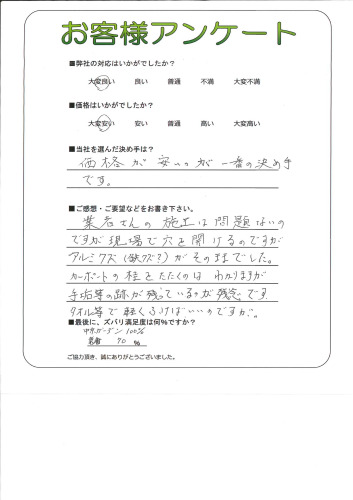 お客様アンケート
■弊社の対応はいかがでしたか？
大変良い 良い 普通 不満 大変不満
■価格はいかがでしたか？
大変安い 安い 普通 高い 大変高い
■当社を選んだ決め手は？
価格が安いのが一番の決め手
です。
■ご感想・ご要望などをお書き下さい。
業者さんの施工は問題ないの
ですが現場で穴を開けるのですが
アルミクズ(鉄クズ?)がそのままでした。
カーポートの柱をたたくのはわかりますが
手垢等の跡が残っているのが残念です
タオル等で軽くふけばいいのですが。
■最後に、ズバリ満足度は何%ですか？
100%
業者 70 %
ご協力頂き、誠にありがとうございました。